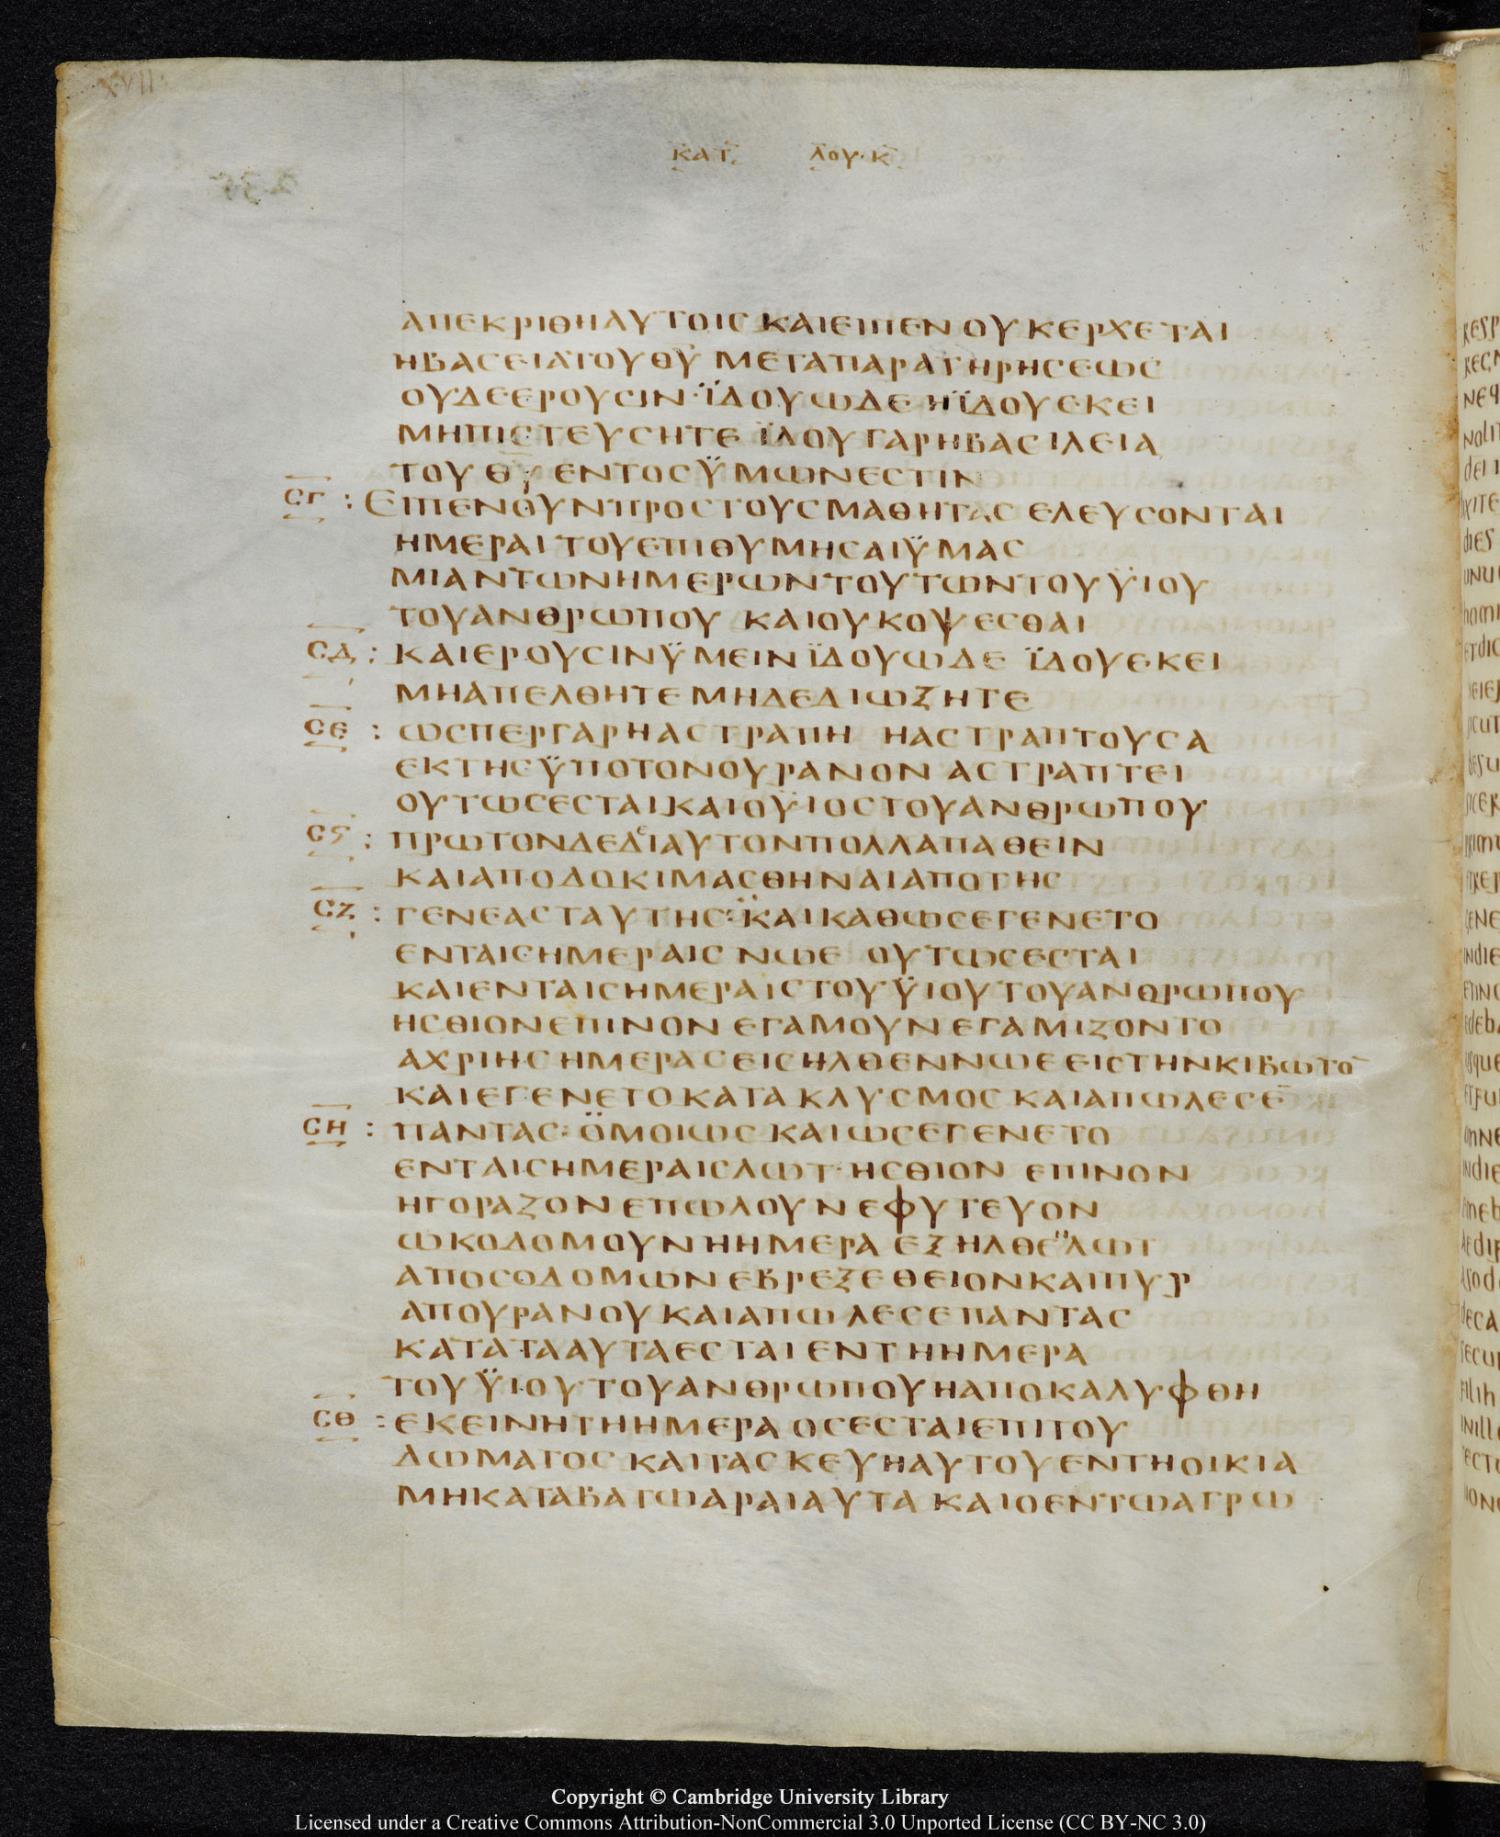 XVII
ΚΑΤ. ΛΟΥ·Κ
ΑΠΕΚΡΙΘΗΑΥΤΟΙΣ ΚΑΙΕΙΠΕΝ ΟΥΚΕΡΧΕΤΑΙ
ΗΒΑΣΕΙΑΤΟΥΘΥ ΜΕΤΑΠΑΡΑΤΗΡΗΣΕΩΣ
ΟΥΔΕΕΡΟΥΣΙΝ·ΪΔΟΥΩΔΕ ΗΪΔΟΥΕΚΕΙ
ΜΗΠΙΣΤΕΥΣΗΤΕ ΪΔΟΥΓΑΡΗΒΑΣΙΛΕΙΑ
ΤΟΥΘΥ ΕΝΤΟΣΫΜΩΝΕΣΤΙΝ
ΣΓ : ΕΙΠΕΝΟΥΝΠΡΟΣΤΟΥΣΜΑΘΗΤΑΣ ΕΛΕΥΣΟΝΤΑΙ
ΗΜΕΡΑΙ ΤΟΥΕΠΙΘΥΜΗΣΑΙΫΜΑΣ
ΜΙΑΝΤΩΝΗΜΕΡΩΝΤΟΥΤΩΝΤΟΥΫΙΟΥ
ΤΟΥΑΝΘΡΩΠΟΥ ΚΑΙΟΥΚΟΨΕΣΘΑΙ
ΣΔ : ΚΑΙΕΡΟΥΣΙΝΫΜΕΙΝ ΪΔΟΥΩΔΕ ΪΔΟΥΕΚΕΙ
ΜΗΑΠΕΛΘΗΤΕ ΜΗΔΕΔΙΩΞΗΤΕ
ΣΕ : ΩΣΠΕΡΓΑΡΗΑΣΤΡΑΠΗ ΗΑΣΤΡΑΠΤΟΥΣΑ
ΕΚΤΗΣΫΠΟΤΟΝΟΥΡΑΝΟΝ ΑΣΤΡΑΠΤΕΙ
ΟΥΤΩΣΕΣΤΑΙΚΑΙΟΫΙΟΣΤΟΥΑΝΘΡΩΠΟΥ
ΣϚ : ΠΡΩΤΟΝΔΕΔΕΙΑΥΤΟΝΠΟΛΛΑΠΑΘΕΙΝ
ΚΑΙΑΠΟΔΟΚΙΜΑΣΘΗΝΑΙΑΠΟΤΗΣ
ΣΖ : ΓΕΝΕΑΣΤΑΥΤΗΣ: ΚΑΙΚΑΘΩΣΕΓΕΝΕΤΟ
ΕΝΤΑΙΣΗΜΕΡΑΙΣ ΝΩΕ ΟΥΤΩΣΕΣΤΑΙ
ΚΑΙΕΝΤΑΙΣΗΜΕΡΑΙΣΤΟΥΫΙΟΥΤΟΥΑΝΘΡΩΠΟΥ
ΗΣΘΙΟΝΕΠΙΝΟΝ ΕΓΑΜΟΥΝΕΓΑΜΙΖΟΝΤΟ
ΑΧΡΙΗΣΗΜΕΡΑΣΕΙΣΗΛΘΕΝΝΩΕΕΙΣΤΗΝΚΙΒΩΤΟ̄
ΚΑΙΕΓΕΝΕΤΟΚΑΤΑΚΛΥΣΜΟΣΚΑΙΑΠΩΛΕΣΕ̄
ΣΗ : ΠΑΝΤΑΣ: ΟΜΟΙΩΣ ΚΑΙΩΣΕΓΕΝΕΤΟ
ΕΝΤΑΙΣΗΜΕΡΑΙΣΛΩΤ·ΗΣΘΙΟΝ ΕΠΙΝΟΝ
ΗΓΟΡΑΖΟΝΕΠΩΛΟΥΝΕΦΥΤΕΥΟΝ
ΩΚΟΔΟΜΟΥΝΗΗΜΕΡΑ ΕΞΗΛΘΕΛΩΤ
ΑΠΟΣΟΔΟΜΩΝΕΒΡΕΞΕΘΕΙΟΝΚΑΙΠΥΡ
ΑΠΟΥΡΑΝΟΥΚΑΙΑΠΩΛΕΣΕΠΑΝΤΑΣ
ΚΑΤΑΤΑΑΥΤΑΕΣΤΑΙΕΝΤΗΗΜΕΡΑ
ΤΟΥΫΙΟΥΤΟΥΑΝΘΡΩΠΟΥΗΑΠΟΚΑΛΥΦΘΗ
ΣΘ : ΕΚΕΙΝΗΤΗΗΜΕΡΑ ΟΣΕΣΤΑΙΕΠΙΤΟΥ
ΔΩΜΑΤΟΣ ΚΑΙΤΑΣΚΕΥΗΑΥΤΟΥΕΝΤΗΟΙΚΙΑ
ΜΗΚΑΤΑΒΑΤΩΑΡΑΙΑΥΤΑ ΚΑΙΟΕΝΤΩΑΓΡΩ
Copyright © Cambridge University Library
Licensed under a Creative Commons Attribution-NonCommercial 3.0 Unported License (CC BY-NC 3.0)